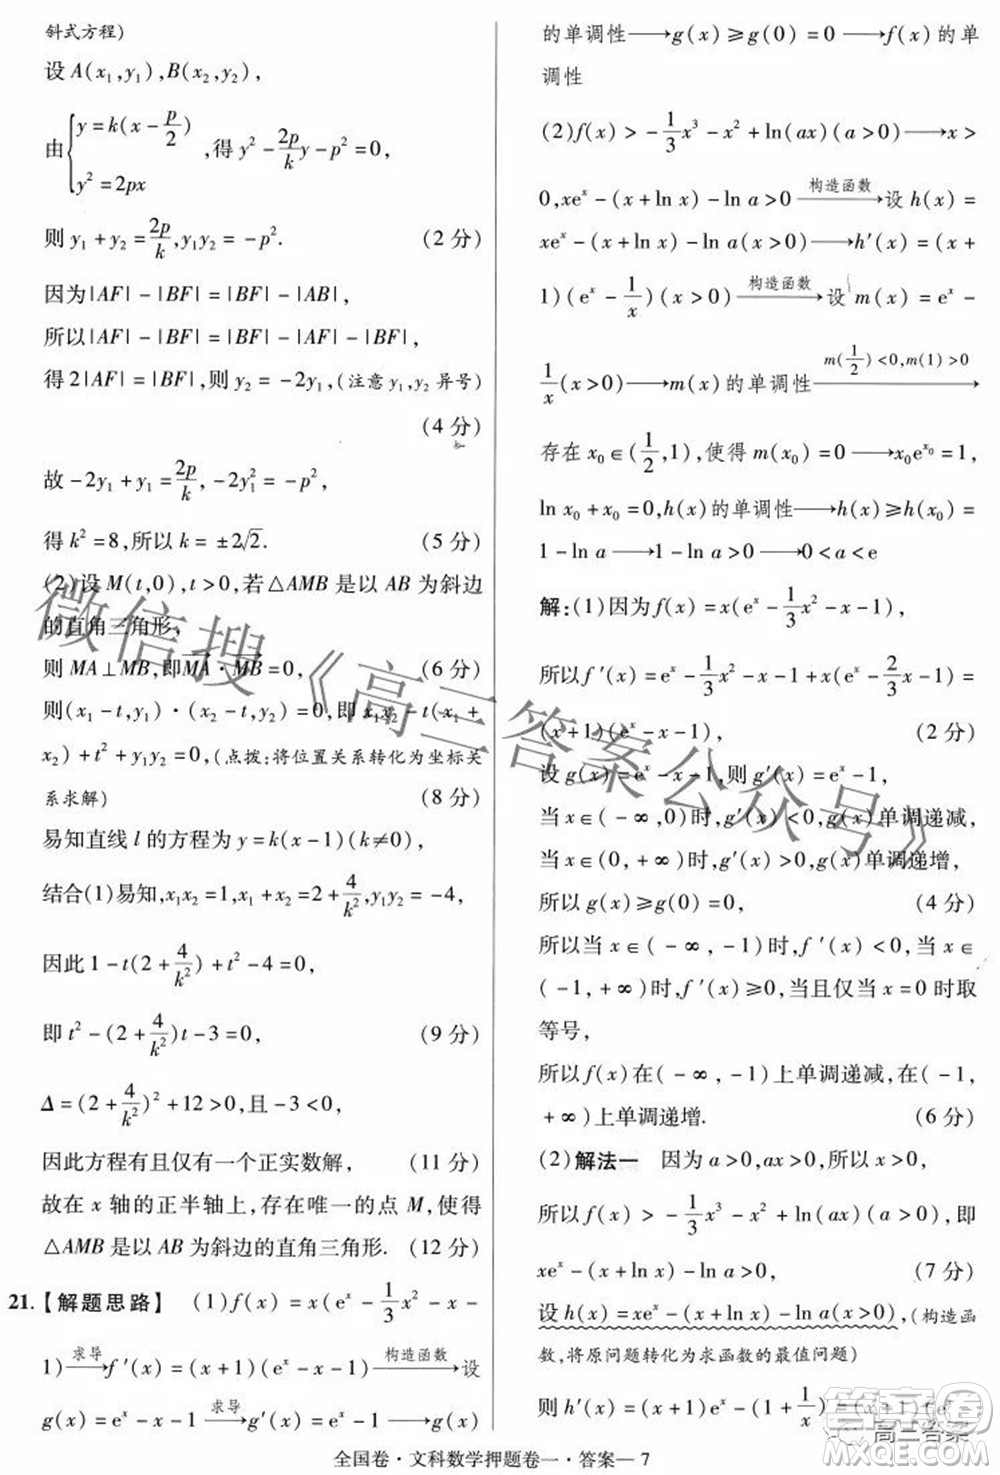 斜式方程)
设 A(x₁,y₁),B(x₂,y₂),
由{y=k(x-p/2), y²=2px ,得 y²-(2p/k)y-p²=0,
则 y₁+y₂=2p/k,y₁y₂=-p². (2 分)
因为|AF|-|BF|=|BF|-|AB|,
所以|AF|-|BF|=|BF|-|AF|-|BF|,
得 2|AF|=|BF|,则 y₂=-2y₁,(注意 y₁,y₂ 异号)
(4 分)
故-2y₁+y₁=2p/k,-2y₁²=-p²,
得 k²=8,所以 k=±2√2. (5 分)
(2)设 M(t,0),t>0,若△AMB 是以 AB 为斜边
的直角三角形,
则 MA⊥MB,即MA·MB=0, (6 分)
则(x₁-t,y₁)·(x₂-t,y₂)=0,即 x₁x₂-t(x₁+
x₂)+t²+y₁y₂=0,(点拨:将位置关系转化为坐标关
系求解) (8 分)
易知直线 l 的方程为 y=k(x-1)(k≠0),
结合(1)易知,x₁x₂=1,x₁+x₂=2+4/k²,y₁y₂=-4,
因此 1-t(2+4/k²)+t²-4=0,
即 t²-(2+4/k²)t-3=0, (9 分)
Δ=(2+4/k²)²+12>0,且-3<0,
因此方程有且仅有一个正实数解, (11 分)
故在 x 轴的正半轴上,存在唯一的点 M,使得
△AMB 是以 AB 为斜边的直角三角形. (12 分)
21.【解题思路】 (1)f(x)=x(eˣ-1/3x²-x-
1)—求导→f′(x)=(x+1)(eˣ-x-1)—构造函数→设
g(x)=eˣ-x-1—求导→g′(x)=eˣ-1→g(x)
的单调性→g(x)≥g(0)=0→f(x)的单
调性
(2)f(x)>-1/3x³-x²+ln(ax)(a>0)→x>
0,xeˣ-(x+ln x)-ln a>0—构造函数→设 h(x)=
xeˣ-(x+ln x)-ln a(x>0)→h′(x)=(x+
1)(eˣ-1/x)(x>0)—构造函数→设 m(x)=eˣ-
1/x(x>0)→m(x)的单调性—m(1/2)<0,m(1)>0→
存在 x₀∈(1/2,1),使得 m(x₀)=0→x₀e^x₀=1,
ln x₀+x₀=0,h(x)的单调性→h(x)≥h(x₀)=
1-ln a→1-ln a>0→0<a<e
解:(1)因为 f(x)=x(eˣ-1/3x²-x-1),
所以 f′(x)=eˣ-1/3x²-x-1+x(eˣ-2/3x-1)=
(x+1)(eˣ-x-1). (2 分)
设 g(x)=eˣ-x-1,则 g′(x)=eˣ-1,
当 x∈(-∞,0)时,g′(x)<0,g(x)单调递减,
当 x∈(0,+∞)时,g′(x)>0,g(x)单调递增,
所以 g(x)≥g(0)=0, (4 分)
所以当 x∈(-∞,-1)时,f′(x)<0,当 x∈
(-1,+∞)时,f′(x)≥0,当且仅当 x=0 时取
等号,
所以 f(x)在(-∞,-1)上单调递减,在(-1,
+∞)上单调递增. (6 分)
(2)解法一 因为 a>0,ax>0,所以 x>0,
所以 f(x)>-1/3x³-x²+ln(ax)(a>0),即
xeˣ-(x+ln x)-ln a>0, (7 分)
设 h(x)=xeˣ-(x+ln x)-ln a(x>0),(构造函
数,将原问题转化为求函数的最值问题)
则 h′(x)=(x+1)eˣ-(1+1/x)=(x+1)(eˣ-
全国卷·文科数学押题卷一·答案—7
微信搜《高三答案公众号》
高三答案
答案圈
MXQE.COM